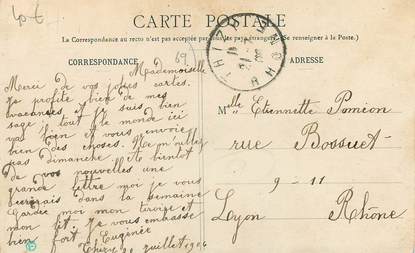 40 €
CARTE POSTALE
La Correspondance au recto n'est pas acceptée par tous les pays étrangers. (Se renseigner à la Poste.)
CORRESPONDANCE
ADRESSE
69
THIZY
RHONE
Mademoiselle
Merci de vos jolies cartes.
Je profite bien de mes
vacances et je suis bien
sage, tout le monde ici
va bien et vous envoie
bien des choses. Ne m'oubliez
pas dimanche. A bientôt
de vos nouvelles une
grande lettre moi je vous
écrirais dans la semaine
Gardez moi mon tiroir et
mon lit. Je vous embrasse
bien fort Eugénie
Thizy juillet 1906
Melle Etiennette Pomion
rue Bossuet
9 - 11
Lyon Rhône